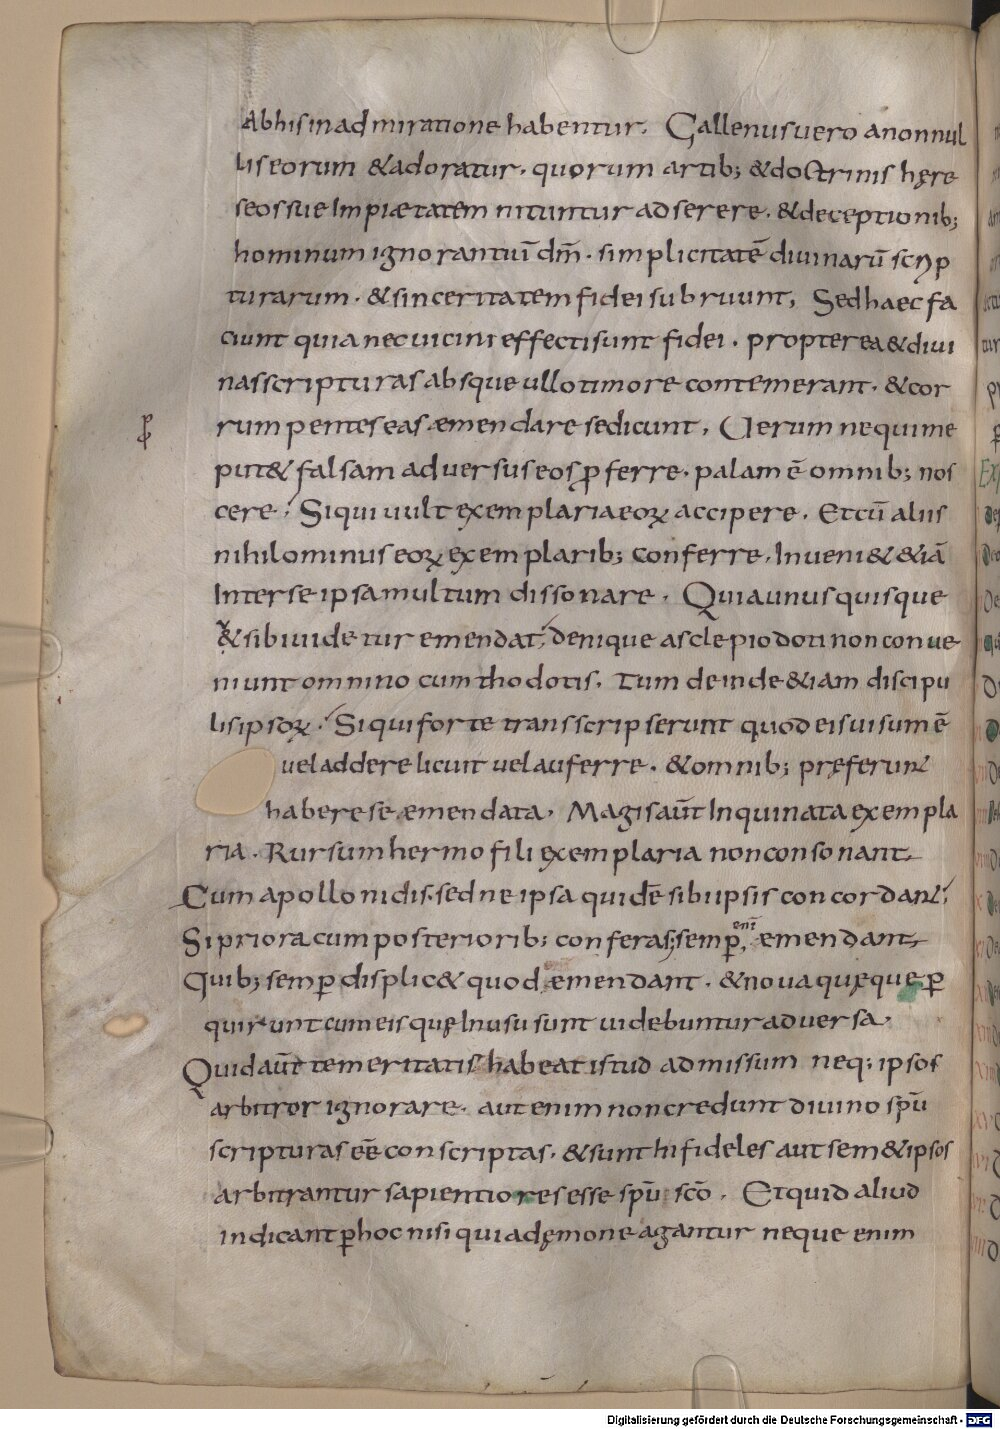 Abhisinadmiratione habentur. Gallenus uero anonnul
lis eorum & adoratur. quorum artib; & doctrinis hęre
seos sue Impiætatem nituntur adserere. & deceptionib;
hominum ignorantiū dm̄. simplicitatē diuinarū scrip
turarum. & sinceritatem fidei subruunt, Sed haec fa
ciunt quia nec uicini effecti sunt fidei. propterea & diui
nas scripturas absque ullo timore contemerant. & cor
rumpentes eas æmendare se dicunt, Uerum ne quime
put& falsam aduersus eos ꝓferre. palam ē omnib; nos
cere. Siqui uult exemplaria eoꝝ accipere. Et cū aliis
nihilominus eoꝝ exemplarib; conferre. Inueni& & iā
Inter se ipsa multum dissonare. Quia unusquisque
& sibi uidetur emendat, denique asclepiodoti non conue
niunt omnino cum thodotis. Tum deinde & iam discipu
lis ipsoꝝ. Siqui forte transscripserunt quod eis uisum ē
uel addere licuit uel auferre. & omnib; pręferunt
habere se æmendata. Magis aūt Inquinata exempla
ria. Rursum hermofili exemplaria non consonant.
Cum apollonidis. sed ne ipsa quidē sibi ipsis concordant.
Si priora cum posteriorib; conferas; semp̄, enī æmendant.
Quib; semp̄ displic& quod æmendant. & noua quęque p̄
quirunt cum eis quę Inusu sunt uidebuntur aduersa.
Quid aūt temeritatis habeat istud admissum neq; ipsos
arbitror ignorare. aut enim non credunt diuino spū
scripturas eē conscriptas. & sunt hi fideles aut sem& ipsos
arbitrantur sapientiores esse spū scō. Et quid aliud
indicant p̄ hoc nisi quia dęmone agantur neque enim
Digitalisierung gefördert durch die Deutsche Forschungsgemeinschaft - DFG